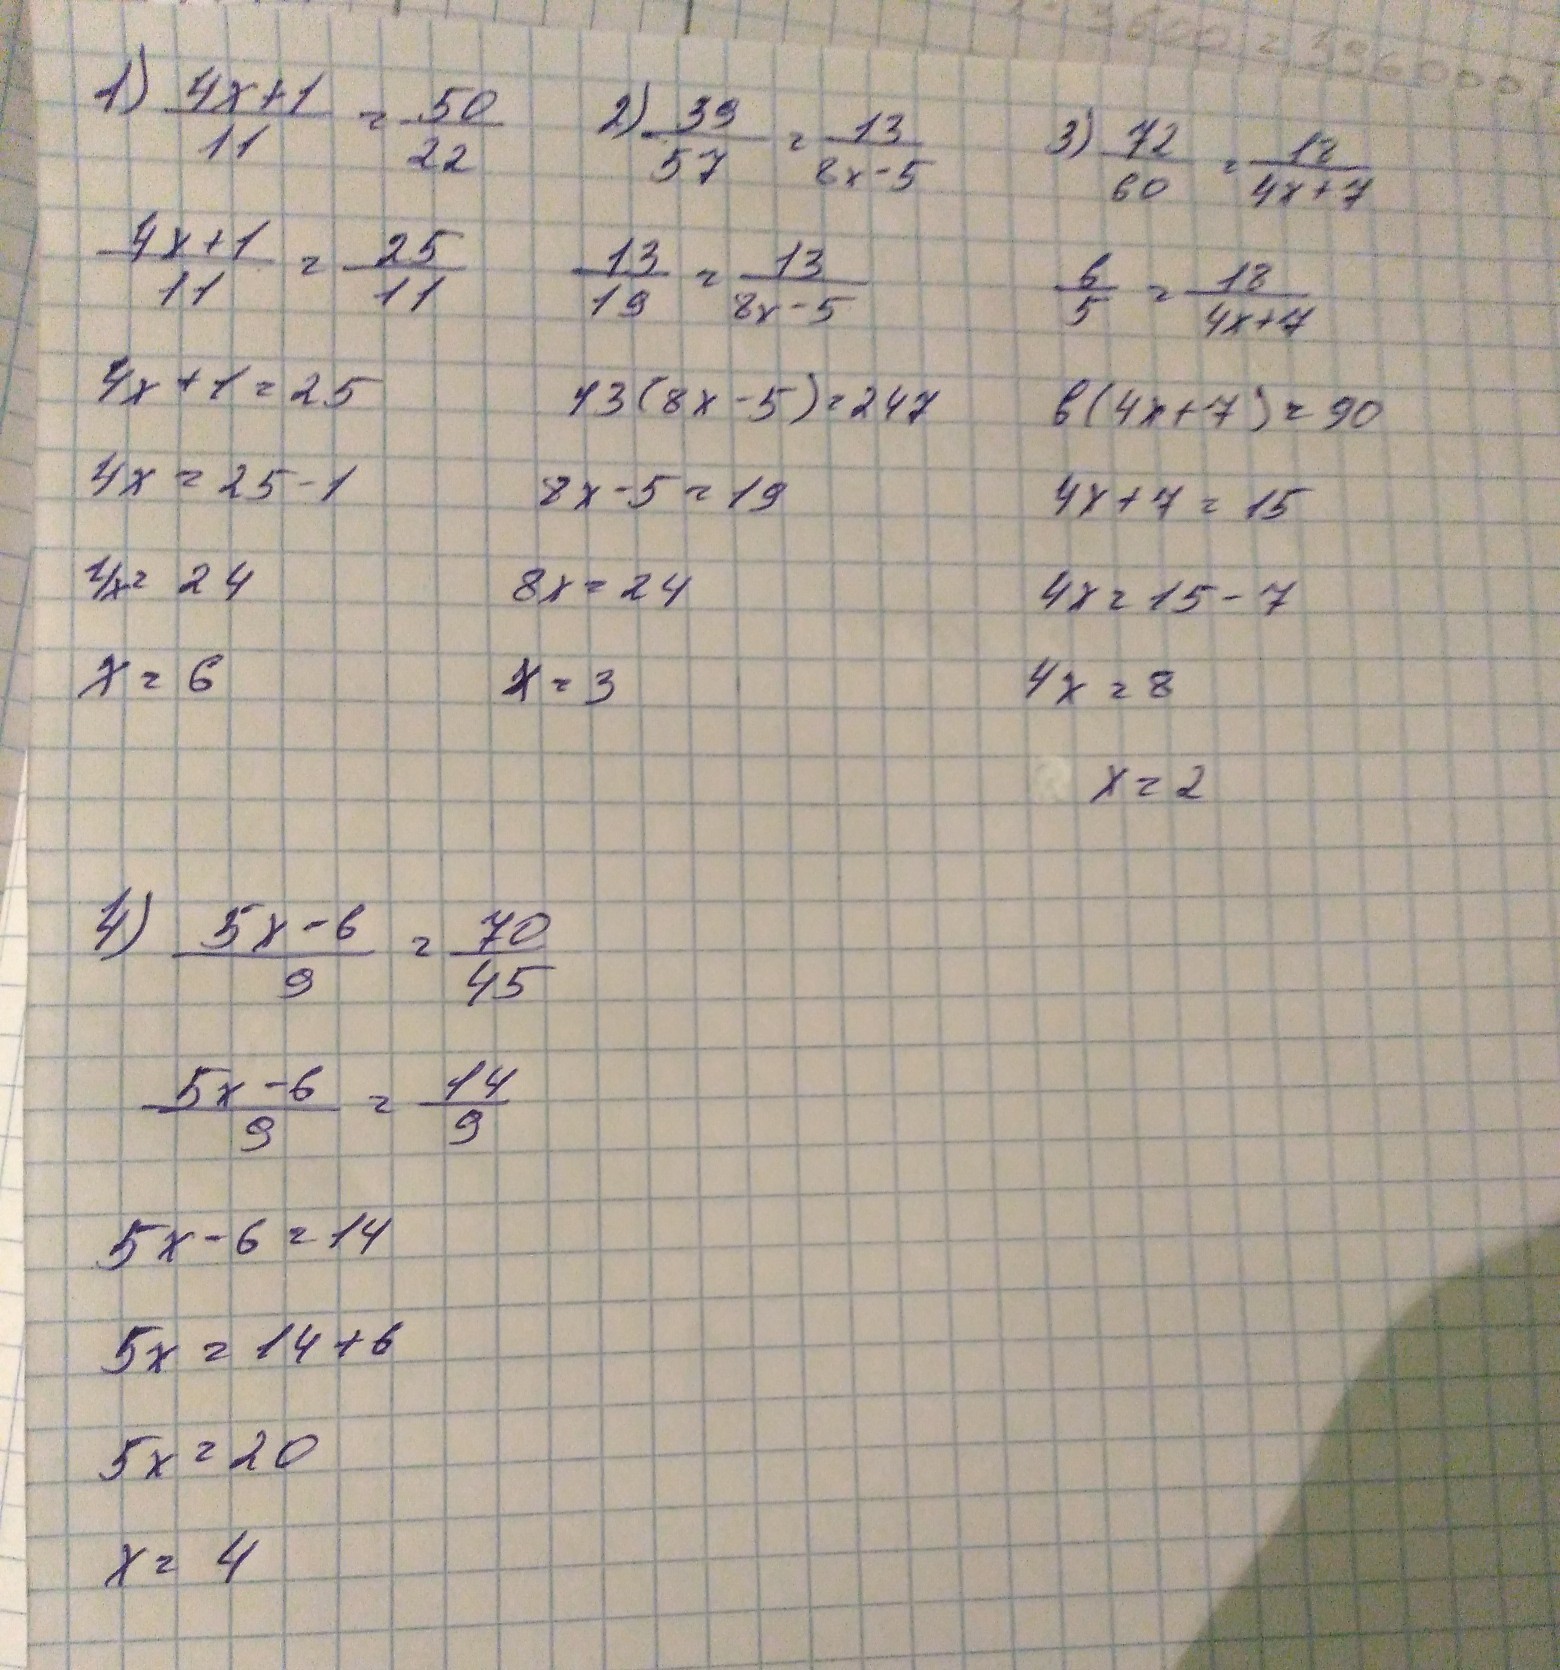 3600 = 3960001
1) (4x+1)/11 = 50/22
4x+1/11 = 25/11
4x+1=25
4x = 25-1
4x= 24
x = 6
2) 39/57 = 13/(8x-5)
13/19 = 13/(8x-5)
13(8x-5)=247
8x-5=19
8x=24
x=3
3) 72/60 = 18/(4x+7)
6/5 = 18/(4x+7)
6(4x+7)=90
4x+7=15
4x=15-7
4x=8
x=2
4) (5x-6)/9 = 70/45
(5x-6)/9 = 14/9
5x-6=14
5x=14+6
5x=20
x= 4